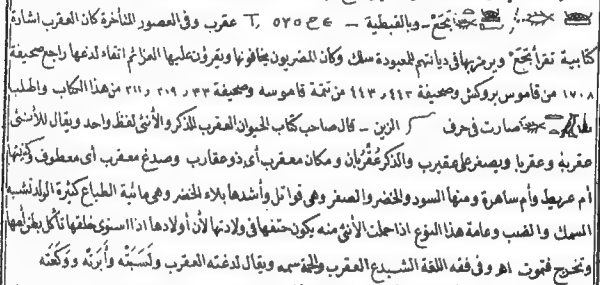 تَجَعْ – وبالقبطية – عقرب وفى العصور المتأخرة كان العقرب اشارة
كتابية تقرأ تجَعْ ويرمز بها فى ديانتهم للمعبودة سلك وكان المصريون يخافونها ويقرؤن عليها العزائم اتقاء لدغها راجع صحيفة
١٧٠٨ من قاموس بروكش وصحيفة ٤٤٢ و ٤٤٣ من تتمة قاموسه وصحيفة ٣٣ و ٢٠٩ و ٢١١ من هذا الكتاب واطلب
صارت فى حرف الزين – قال صاحب كتاب الحيوان العقرب للذكر والأنثى لفظ واحد ويقال للأنثى
عقربة وعقربا ويصغر على عقيرب والذكر عُقْرُبان ومكان معقرب أى ذو عقارب وصدغ معقرب أى معطوف وكنيتها
أم عريط وأم ساهرة ومنها السود والخضر والصفر وهى قواتل وأشدها بلاء الخضر وهى مائية الطباع كثيرة الولد تشبه
السمك والضب وعامة هذا النوع اذا حملت الأنثى منه يكون حتفها فى ولادتها لأن أولادها اذا استوى خلقها تأكل بطن أمها
وتخرج فتموت اهـ وفى فقه اللغة الشبدع العقرب والحمة سمه ويقال لدغته العقرب ولَسَبَتْه وأَبَرَتْه ووَكَعَتْه